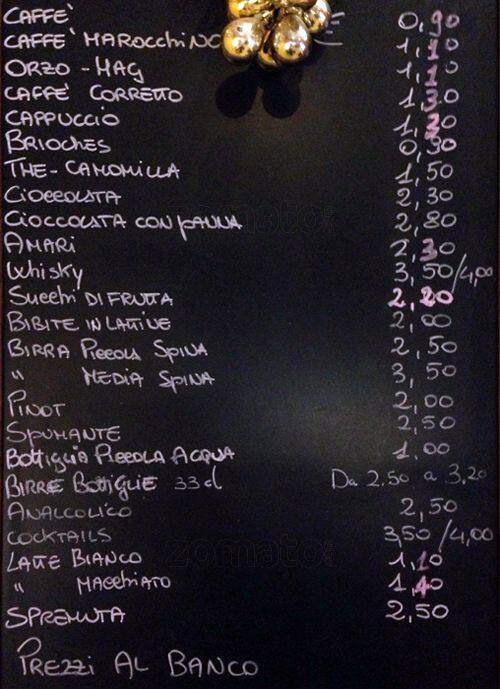 CAFFE' 0,90
CAFFE' MAROCCHINO 1,10
ORZO - MAG 1,10
CAFFE' CORRETTO 1,30
CAPPUCCIO 1,20
BRIOCHES 0,90
THE - CAMOMILLA 1,50
CIOCCOLATA 2,30
CIOCCOLATA CON PANNA 2,80
AMARI 2,30
Whisky 3,50/4,00
Succhi DI FRUTTA 2,20
BIBITE IN LATTINE 2,00
BIRRA PICCOLA SPINA 2,50
" MEDIA SPINA 3,50
PINOT 2,00
SPUMANTE 2,50
Bottiglia PICCOLA ACQUA 1,00
BIRRE Bottiglie 33 cl Da 2.50 a 3,20
ANALCOLICO 2,50
COCKTAILS 3,50/4,00
LATTE BIANCO 1,10
" MACCHIATO 1,40
SPREMUTA 2,50
PREZZI AL BANCO